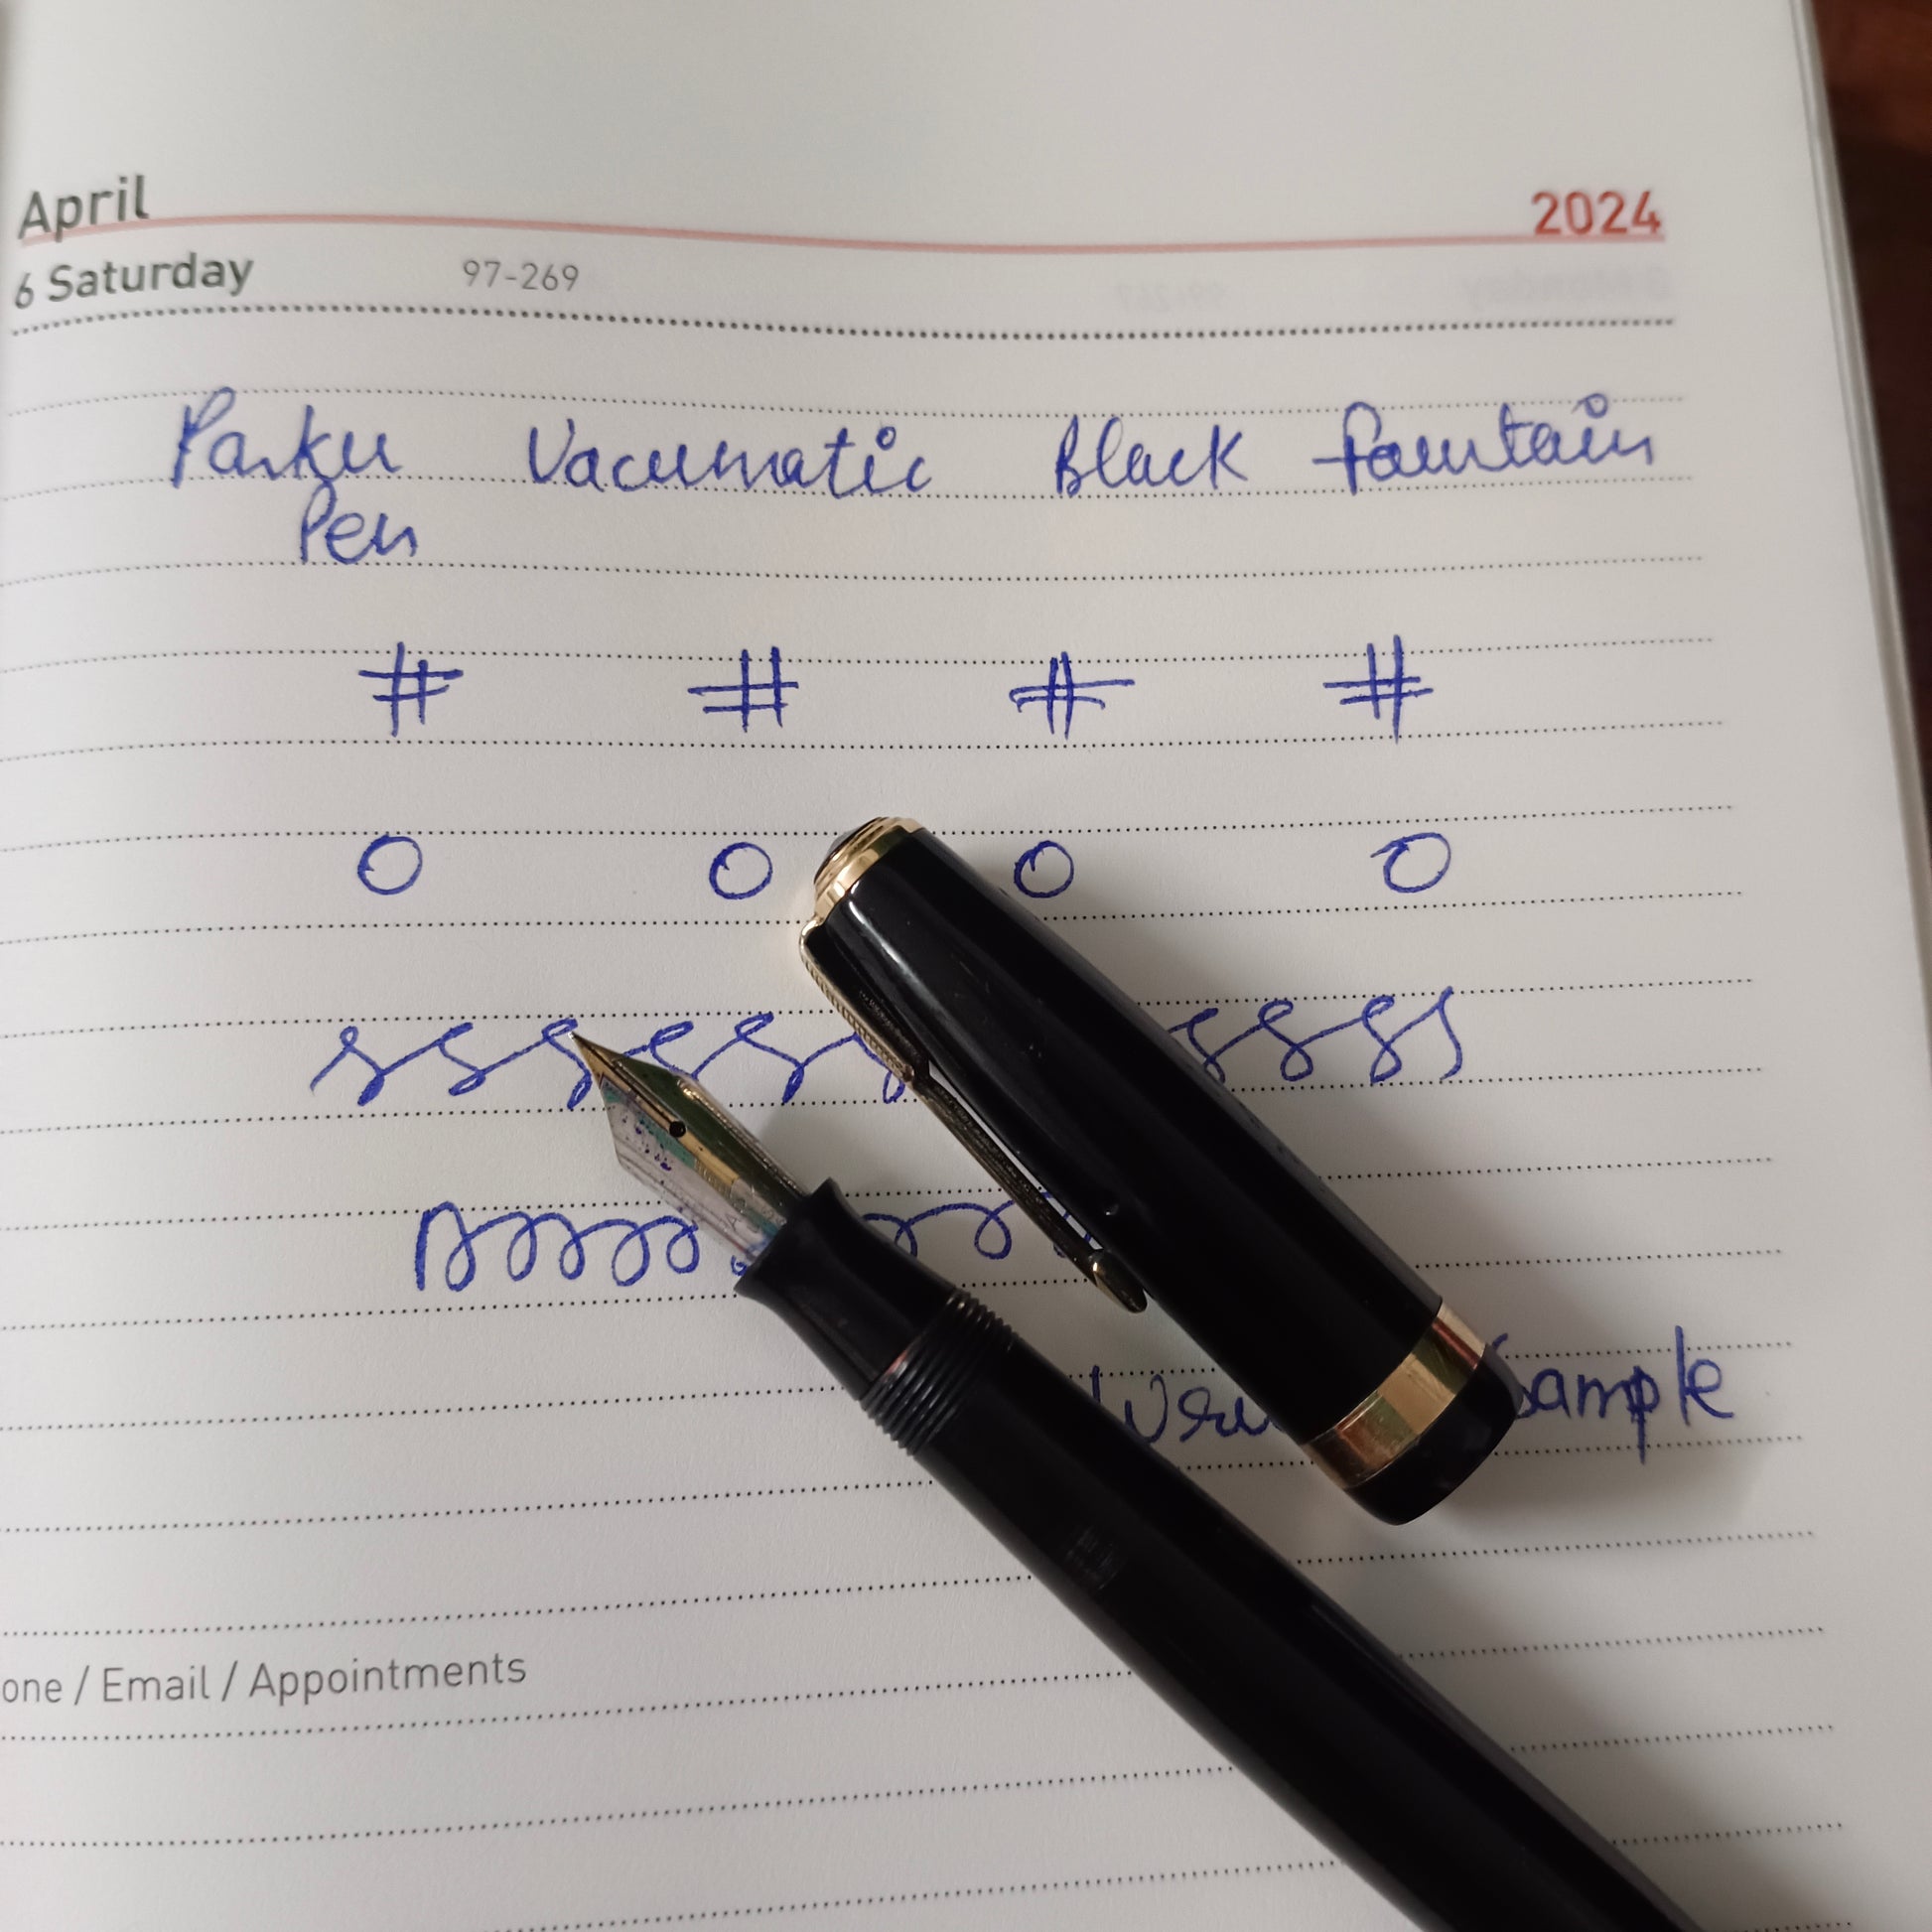 April 2024
6 Saturday 97-269
Parker Vacumatic Black Fountain
Pen
# # # #
O O O O
Sample
/ Email / Appointments